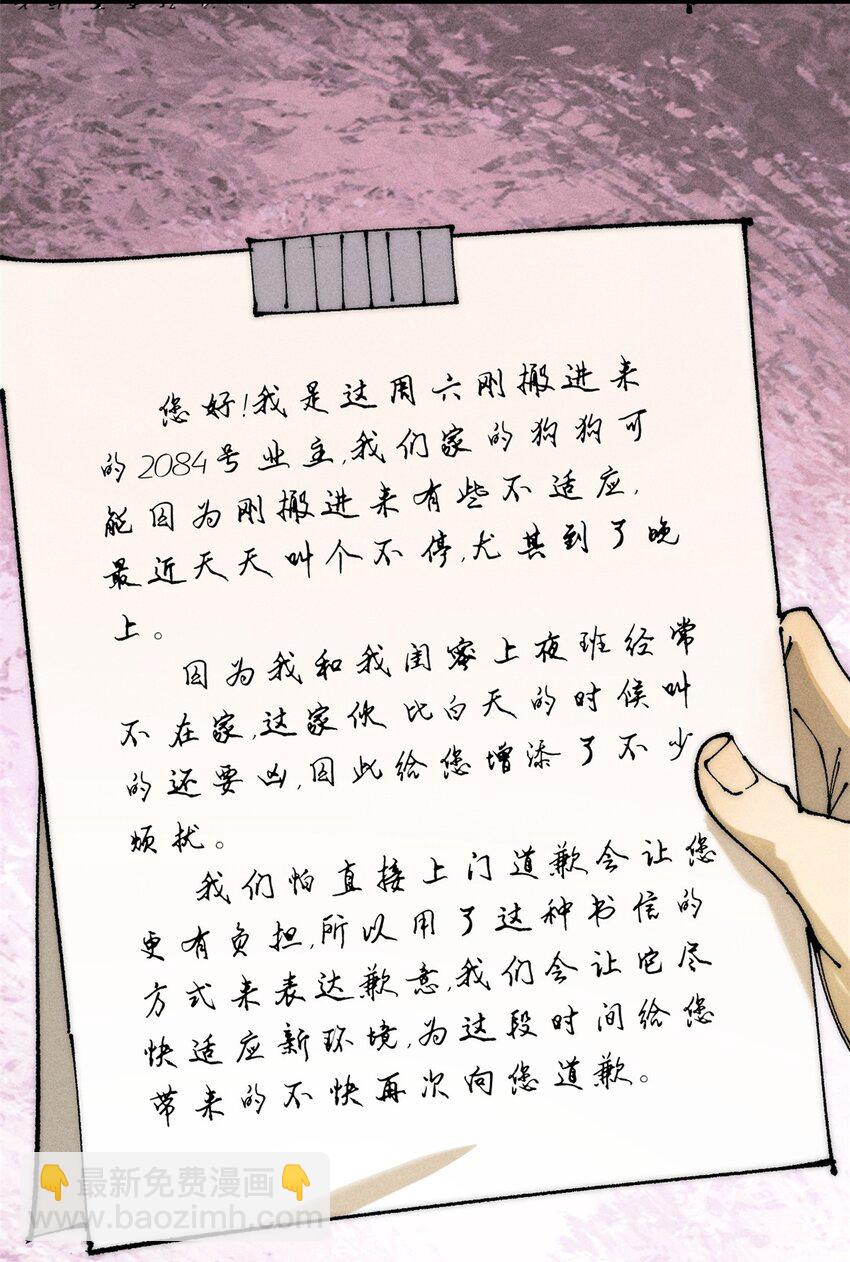 您好!我是这周六刚搬进来
的2084号业主,我们家的狗狗可
能因为刚搬进来有些不适应,
最近天天叫个不停,尤其到了晚
上。
因为我和我闺蜜上夜班经常
不在家,这家伙比白天的时候叫
的还要凶,因此给您增添了不少
烦扰。
我们怕直接上门道歉会让您
更有负担,所以用了这种书信的
方式来表达歉意,我们会让它尽
快适应新环境,为这段时间给您
带来的不快再次向您道歉。
👇最新免费漫画👇
www.baozimh.com